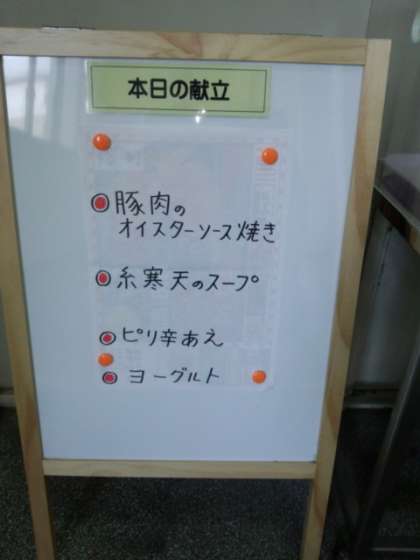 本日の献立
豚肉の
オイスターソース焼き
糸寒天のスープ
ピリ辛あえ
ヨーグルト